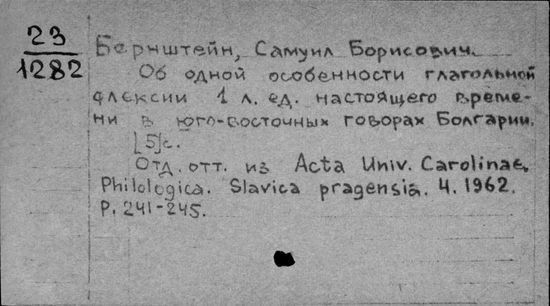 23
1282
Бернштейн, Самуил Борисович.
Об одной особенности глагольной
флексии 1 л. ед. настоящего време-
ни в юго-восточных говорах Болгарии.
[5]с.
Отд. отт. из Acta Univ. Carolinae,
Philologica. Slavica pragensia. 4. 1962.
P. 241-245.